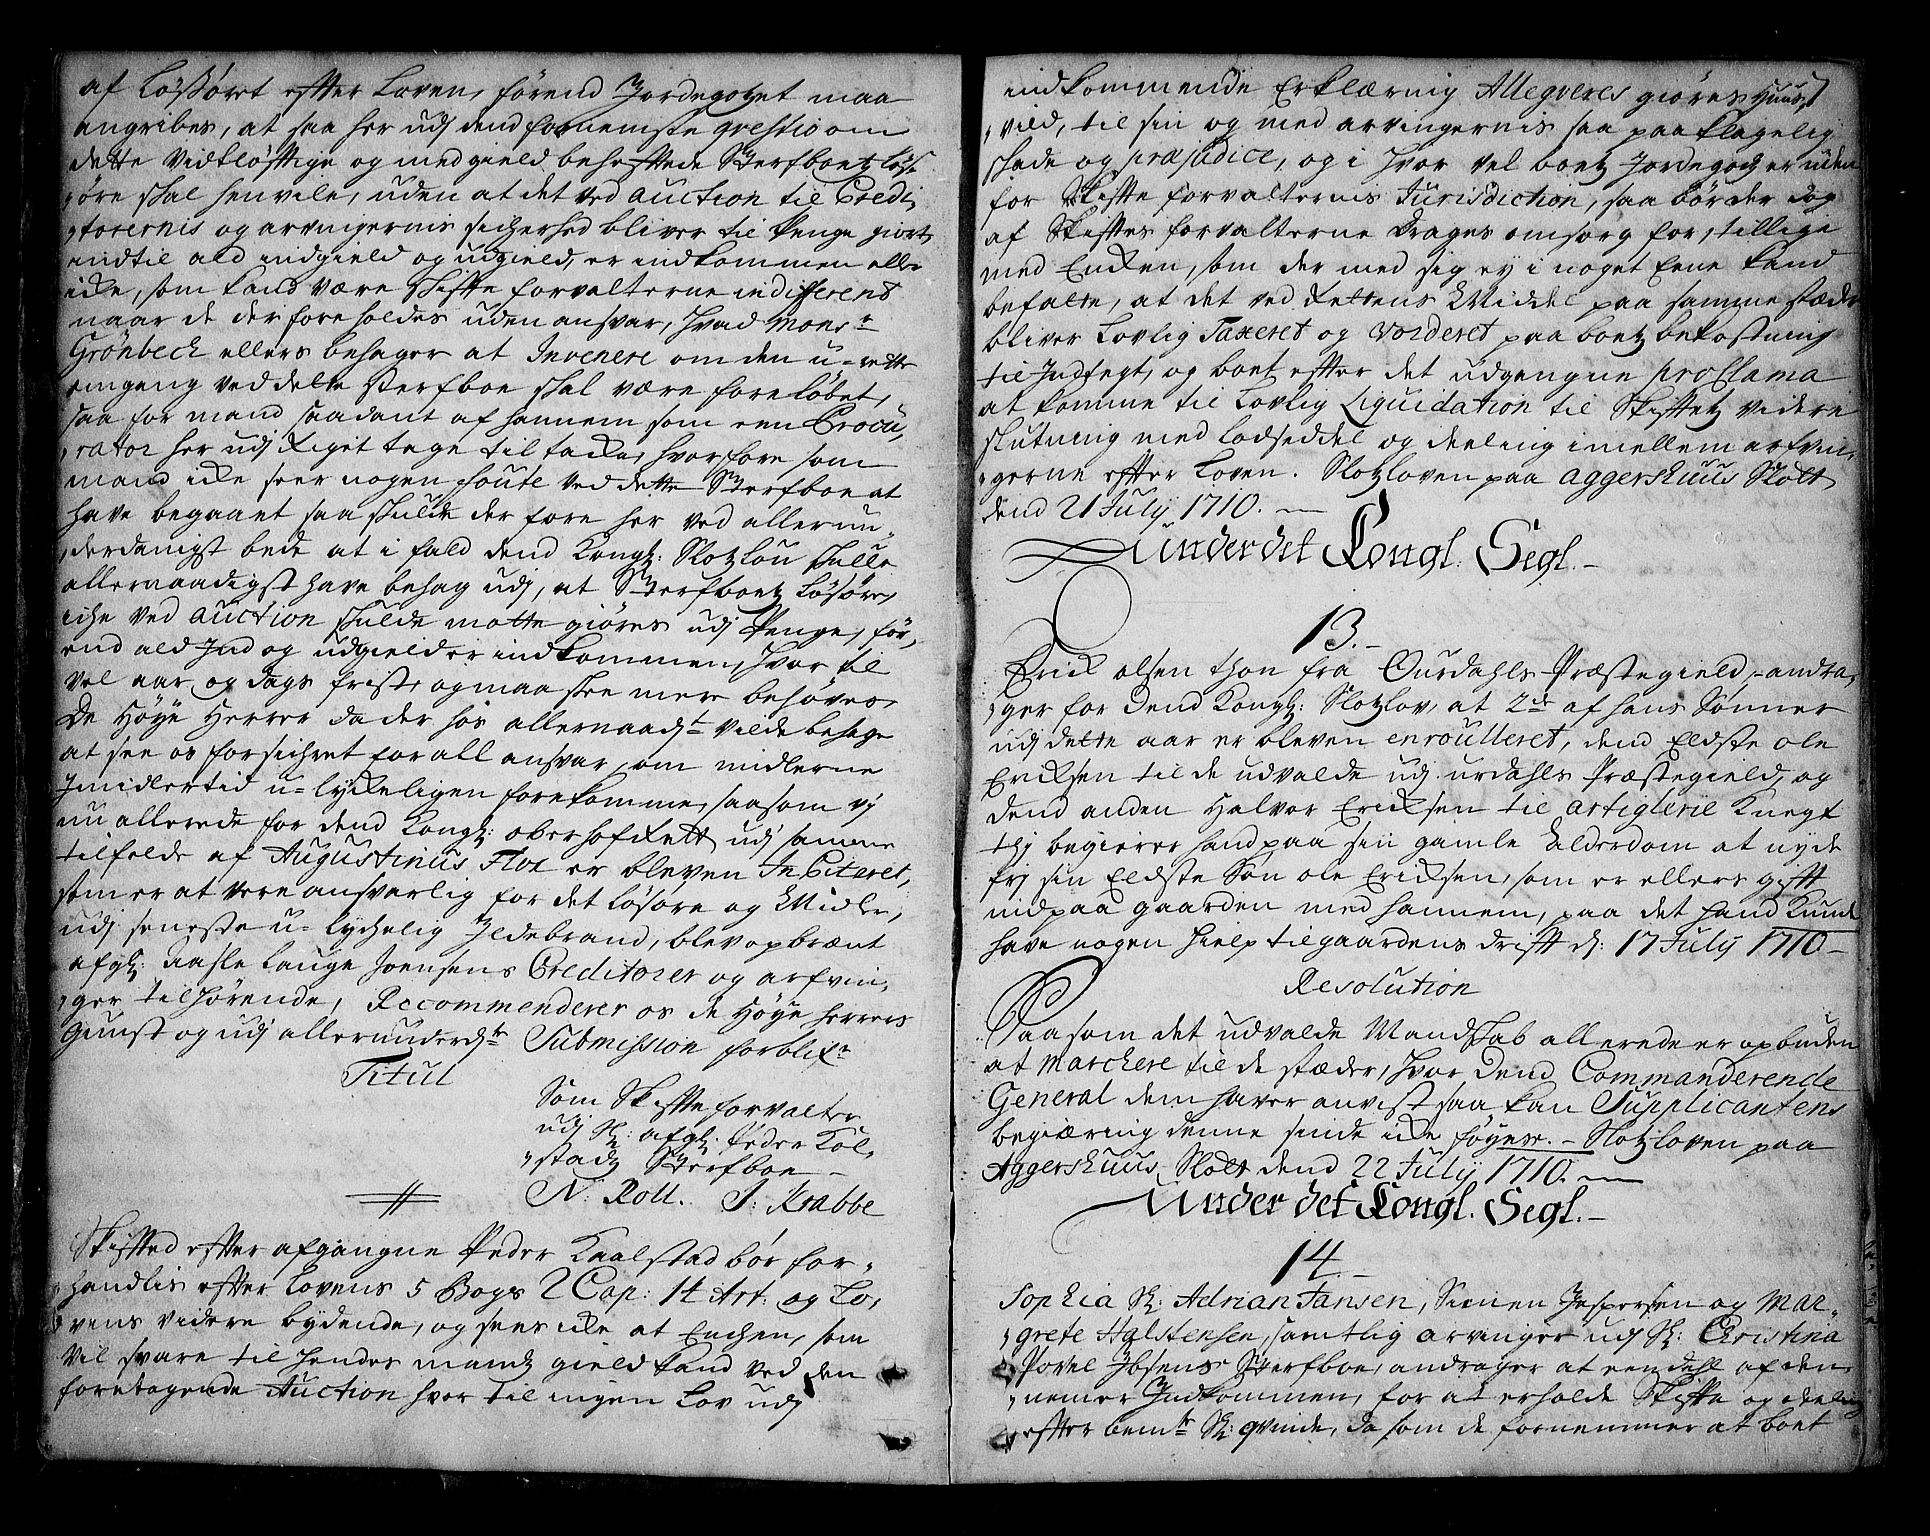 af Løßøret effter Loven, førend Jordegotzet maa
angribes, at saa her udj dend fornemste qvestio om
dette vidtløfftige og med gield beheftede Sterfboetz løß-
øre skal henvile, uden at det ved Auction til Credi,
,torernis og arvingernis sicherhed bliver til Penge giort
indtil ald indgield og udgield, er indkommen eller
icke, som kand være Skiffte forvalterne indifferent
naar de der foreholdes uden ansvar, hvad Mons:r
Grønbeck ellers behager at Invenere om den u-rette
omgang ved dette Sterfboe skal være foreløbet,
saa for mand saadant af hannem som een Procu,
,rator her udj Riget tage til tacke, hvorfore som
mand icke seer nogen foute ved dette Sterfboe at
have begaaet saa skulde der fore her ved allerun,
,derdanigst bede at i fald dend Kongl: Slotzlou skulle
allernaadigst have behag udj, at Sterfboetz Løsøre,
iche ved Auction skulde motte giøres udj Penge, før,
end ald Ind og udgield er indkommen, hvor til
vel aar og dags frist, og maa skee mere behøves
De Høye Herrer da der hos allernaadst vilde behage
at see os forsichret for all ansvar, om midlerne
Imidlertid u-lyckeligen forekomme, saasom vj
nu allerede for dend Kongl: oberhofrett udj samme
tilfelde af Augustinus Flor er bleven In Citeret,
som er at vere ansvarlig for det løsøre og Midler,
udj seneste u-lychelig Ildebrand, blev opbrænt
afgl: Aasle Lauge Joensens Creditorer og arfvin,
,ger tilhørende, Recommenderer os de Høye herrers
Gunst og udj allerunderdste Submission forblifr
Titul
Som Skiffte forvalter
udj Sl: afgl: Peder Kol,
,stadz Sterfboe
N: Roll. J: Krabbe
Skifted effter afgangne Peder Kaalstad bør for,
,handlis effter Lovens 5 Bogs 2 Cap: 14 Art: og Lo,
vens videre bydende, og sees icke at Enchen, som
vil svare til hendes mandz gield kand ved den
foretagende Auction hvor til ingen Lov udj
indkommende Erklærning Allegveres giøres Huus,
,vild, til sin og med arvingernis saa paa klagelig
skade og præjudice, og i hvor vel boetz Jordegodz er uden
for Skiffte forvalternis Jurisdiction, saa bør der dog
af Skifftes forvalterne drages omsorg for, tillige
med Encken, som der med sig ey i noget Eene kand
befatte, at det ved Rettens Middel paa samme stæder
bliver Lovlig Taxeret og Vorderet paa boetz bekostning
til Indtegt, og boet effter det udgangne proclama
at komme til Lovlig Liquidation til Skifftetz videre
slutning med Lodseddel og deeling imellem arfvin,
,gerne effter Loven. Slotzloven paa Aggershuus Slott
dend 21 July 1710.
Under det Kongl. Segl.
13.
Erick olsen thon fra Ourdahls Præstegield, andra,
,ger for Dend Kongl: Slotzlov, at 2de af hans Sønner
udj dette aar er bleven enroulleret, dend Eldste ole
Ericksen til de udvalde udj urdahls Præstegield, og
dend anden Halvor Ericksen til Artiglerie Knegt
thj begierer hand paa sin gamle Alderdom at nyde
frj sin Eldste Søn ole Ericksen, som er ellers gifft
ind paa gaarden med hannem, paa det hand kunde
have nogen hielp til gaardens drifft d: 17 July 1710
Resolution
Saasom det udvalde Mandskab allerede er opbuden
at Marchere til de stæder, hvor Dend Commanderende
General dem haver anvist, saa kan Supplicantens
begiæring denne sinde icke føyes. Slotzloven paa
Aggershuus Slott dend 22 July 1710.
Under det Kongl. Segl.
14.
Sophia Sl: Adrian Jansen, Simen Jespersen og Mar,
,grete Halstensen, samtlig arvinger udj Sl: Christina
Povel Ibsens Sterfboe, andrager at een dehl af den,
,nemer Indkommen, for at erholde Skiffte og deeling
effter bemte Sl: qvinde, da som de fornemmer at boet